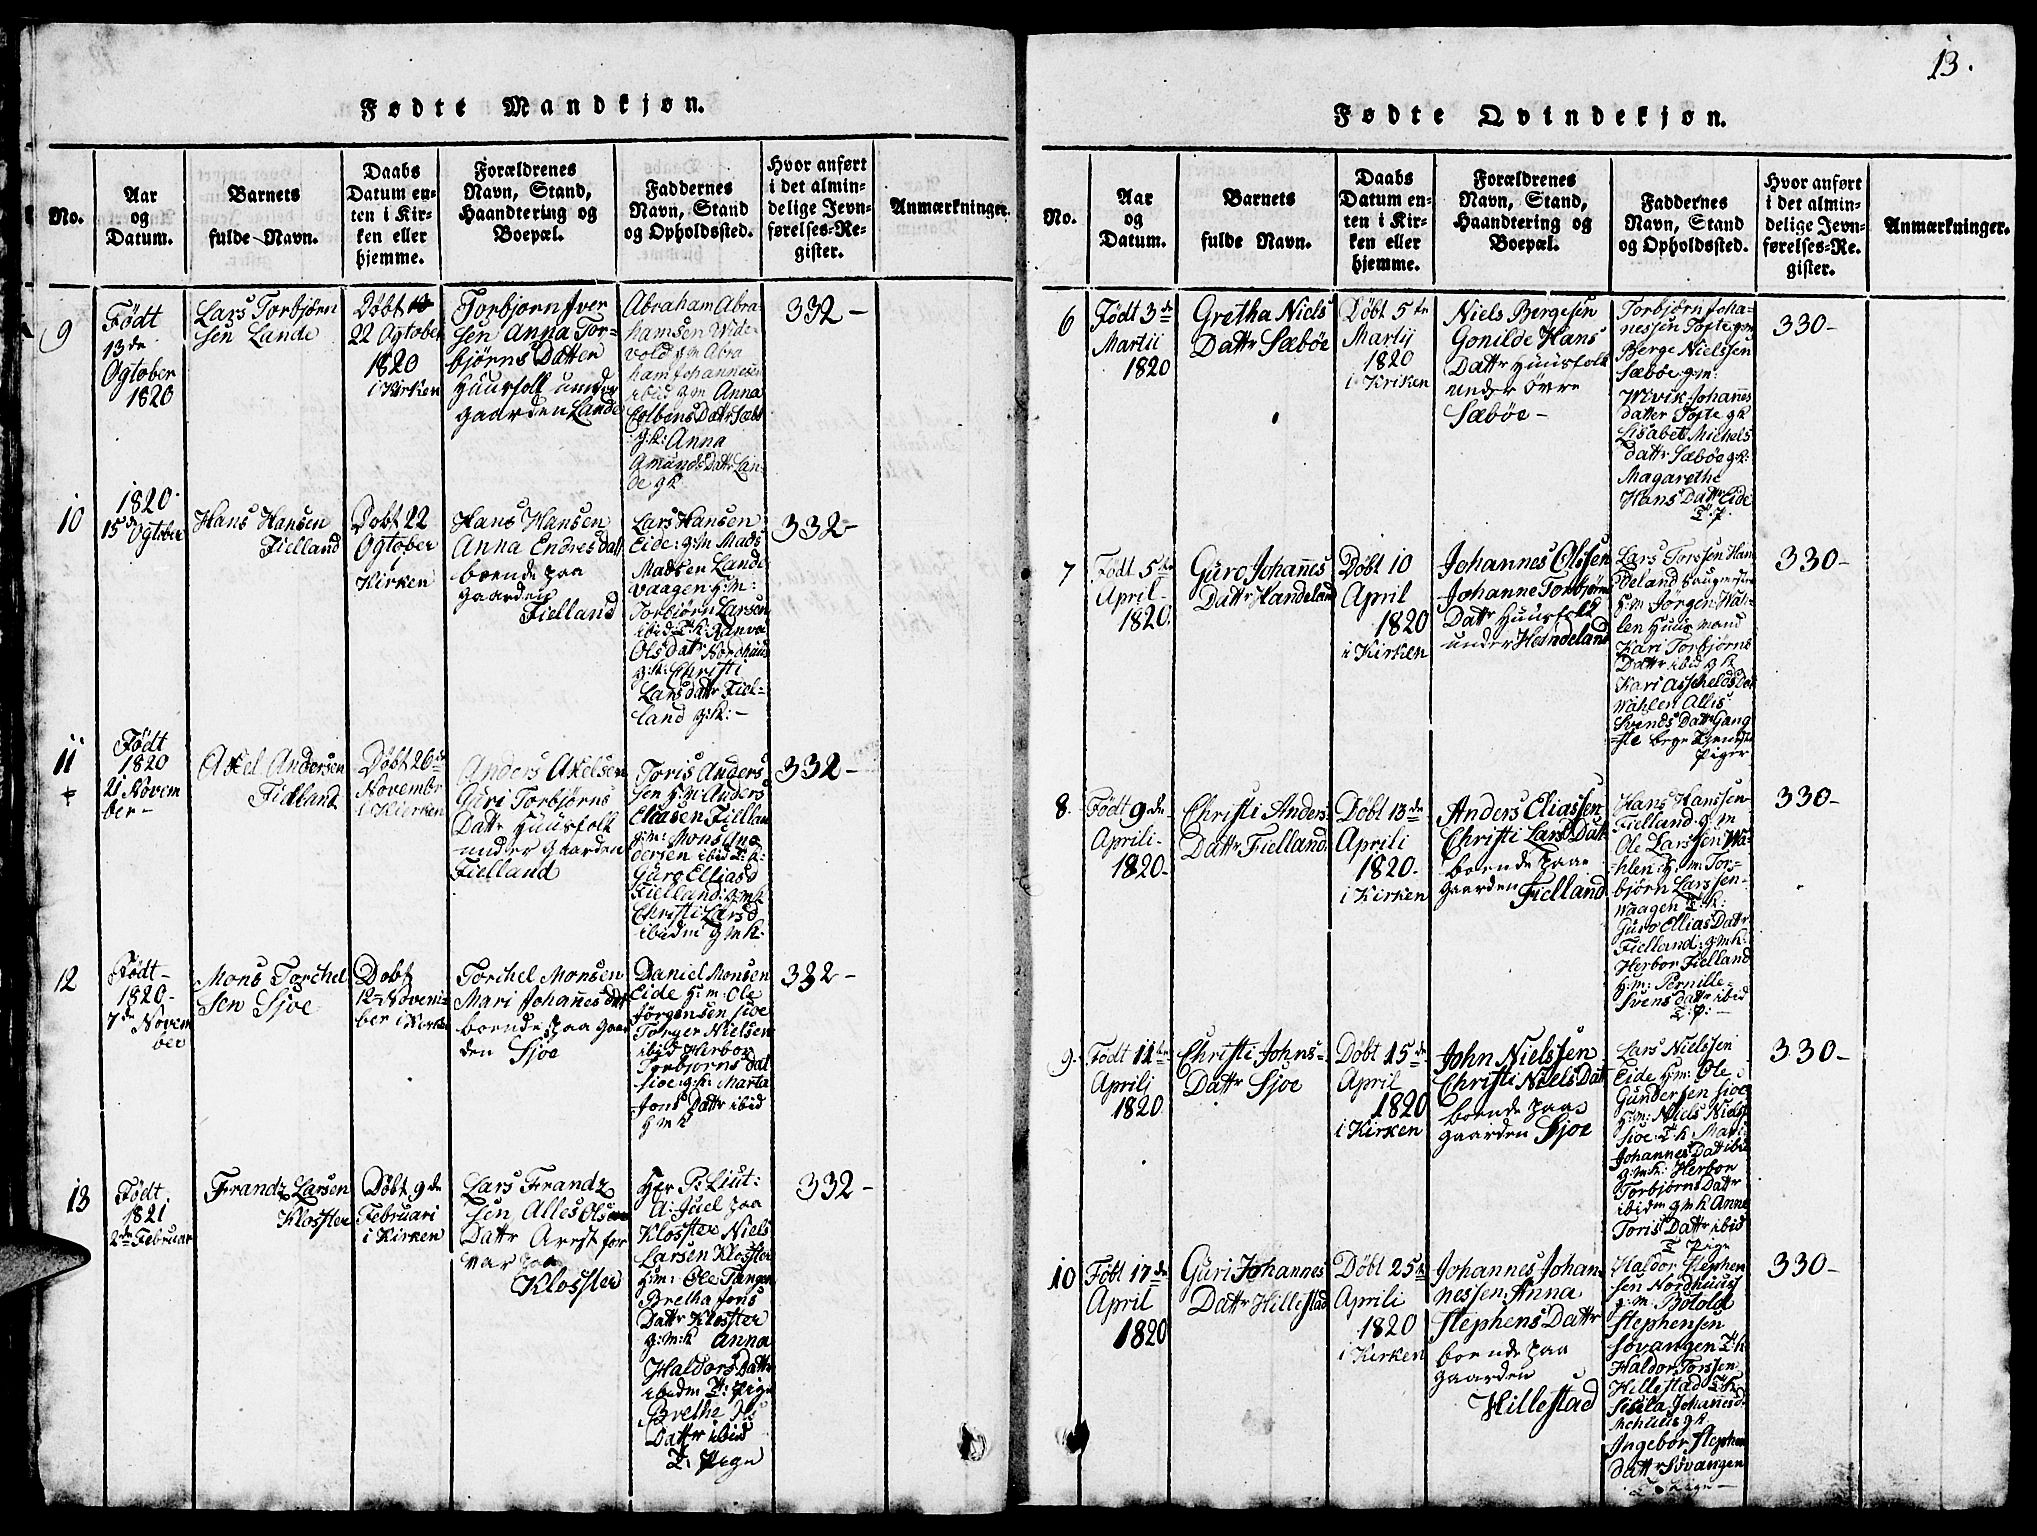 13.
Fødte Mandkjøn.
No.
Aar
og
Datum.
Barnets
fulde Navn.
Daabs
Datum en-
ten i Kir-
ken eller
hjemme.
Forældrenes
Navn, Stand,
Haandtering og
Boepæl.
Faddernes
Navn, Stand
og Opholdssted.
Hvor anført
i det almin-
delige Jevn-
førelses-Re-
gister.
Anmærkninger.
9
Født
13de
Ogtober
1820
Lars Torbjörn
sen Lande
Döbt
22 Ogtober
1820
i Kirken
Torbjorn Iver
sen Anna Tor-
björns Datter
Huusfolk under
gaarden Lande
Abraham Abra-
hamsen Wide-
vold gm Abra
ham Johannesen
ibid gm Anna
Colbens Datr Sæbö
g:k: Anna
Amunds Datr Lan-
de gk
332-
10
1820
15de Ogtober
Hans Hansen
Fielland
Döbt 22
Ogtober
Kirken
Hans Hansen
Anna Endres datt
boende paa
gaarden
Fielland
Lars Hansen
Eide: g:m Mads
Madsen Lande
Vaagen g:m:
Torbiörn Larsen
ibid: T:k: Ranva
Ols datr Nordhuus
g:k: Christi
Lars datr Fiel-
land g:k:-
332-
11
Födt
1820
21 Novem
ber-
Axel Andersen
Fielland
Döbt 26de
Novembr
i Kierken
Anders Axelsen
Guri Torbjörns
Datr Huusfolk
under gaarden
Fielland
Toris Anders
sen H:m: Anders
Eliasen Fiellan
g:m: Mons An
dersen ibid T:k:
Guro Ellias d
Fielland: g:m:k:
Christi Lars d
ibidm g m k:
332-
12
Födt-
1820-
7de Novem
ber
Mons Torchel
sen Sjoe
Döbt
12te Novem-
ber i Kirken
Torchel Monsen
Mari Johannes datt
boende paa Gaar
den Sjoe
Daniel Monsen
Eide H:m: Ole
Jörgensen Sioe
Torger Nielsen
ibid Herbor
Torbjorns dat
Sioe: g:k: Marta
Jons Dattr ibid
g m k
332-
13
Födt
1821
2den Februar
Frandz Larsen
Klosster
Döbt 9de
Februari
i Kirken
Lars Frandz
sen Alles Olsen
Dattr Arrst for
var paa
Klosster
Hr P: Lieut:
A: Juel paa
Klosster Niels
Larsen Klosster
H:m: Ole Tangen
Bretha Jons
Dattr Klosster
g:m:k Anna
Haldors Dattr
ibidm T: Pige
Brethe
Dattr ibid
T: Pige
332-
Fødte Qvindekjøn.
No.
Aar
og
Datum.
Barnets
fulde Navn.
Daabs
Datum en-
ten i Kir-
ken eller
hjemme.
Forældrenes
Navn, Stand,
Haandtering og
Boepæl.
Faddernes
Navn, Stand
og Opholdssted.
Hvor anført
i det almin-
delige Jevn-
førelses-Re-
gister.
Anmærkninger.
6
Födt 3de
Martii
1820
Gretha Niels
Dattr Sæböe
Döbt 5te
Martij
1820
i Kriken
Niels Bergesen
Gonilde Hans
Dattr Huusfolk
under övre
Sæböe-
Torbjörn Joha-
nessen Tofte g:m
Berge Nielssen
Sæböe g:m:
Wivik Johannes
datter Tofte gk
Lisabet Michels
dattr Sæböe g:k:
Magarethe
Hans Dattr Eide
T: P.
330-
7
Födt 5te
April-
1820.
Guro Johannes
Dattr Handeland
Döbt 10
April
1820
i Kirken
Johannes Olssen
Johanne Torbjörns
Dattr Huusfolk
under Handeland
Lars Torssen Han
deland
H:m Jörgen Wah-
len Huusmand
Kari Torbjörns
Dattr ibid gk
Kari Asskelds Dat
Wahlen Allis
Svends Dattr Gang
ste bege Tieneste
Piger
330-
8.
Födt 9de
Aprili-
1820-
Christi Anders
Dattr Fielland
Döbt 13de
Aprili
1820-
i Kirken
Anders Eliassen
Christi Lars Datt
boende paa-
gaarden Fielland
Hans Hanssen
Fielland. g. m
Ole Larssen Wa-
hlen: g:m: Tor-
björn Larssen-
Waagen T:k:
Guro Ellias Dattr
Fielland: g:m:k:
Herbor Fielland
H:m: Pernille-
Svens dattr ibid
T: P:-
330-
9.
Födt 11te
Aprili
1820
Christi Johns-
Dattr Sjoe
Döbt 15de
April
1820
i Kirken
John Nielssen
Christi Niels Datt
boende paa
gaarden Sjoe
Lars Nielssen
Eide H:m: Ole
Gundersen Sioe
H:m: Niels Niels
Sioe: T:k: Mari
Johannes Datt ibid
g:m:k: Herbor
Torbjörns Dattr
ibidm g m k Anne
Toris Dattr ibid
T Pige
330-
10
Födt 17de
April
1820
Guri Johannes
Dattr Hillestad
Döbt 25te
Aprili
1820
i Kirken
Johannes Johan-
nessen Anna
Stephens Dattr
boende paa
gaarden
Hillestad
Haldor Stephen
sen Nordhuus
g:m: Botold
Stephensen
Sövangen T:k
Haldor Torssen
Hillestad T:k
Sisela Johannes d
Mehuus gk.
Ingebor Stephen
Dattr Sövangen
T: Pige-
330-